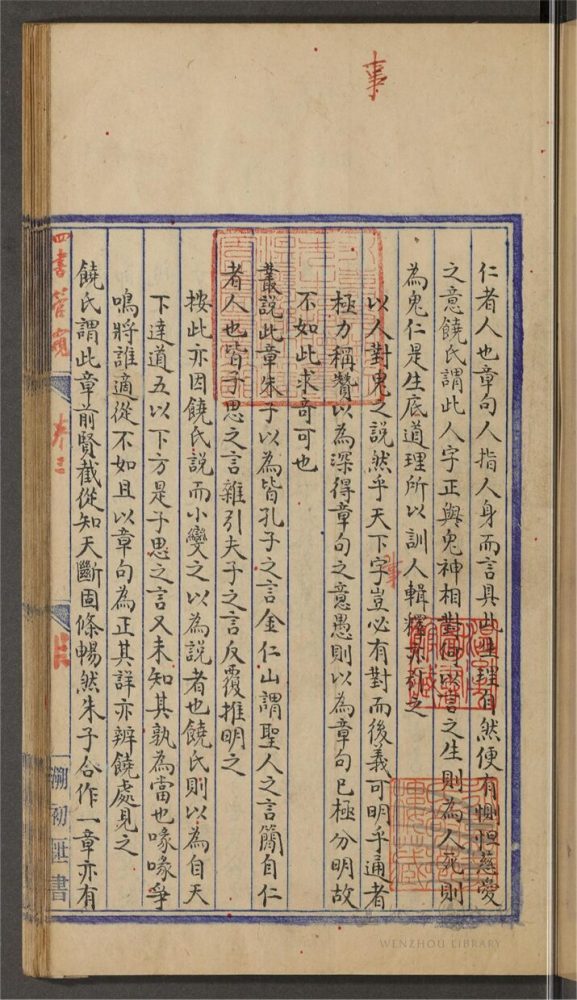 事
仁者人也章句人指人身而言具此生理自然便有惻怛慈愛
之意饒氏謂此人字正與鬼神相對何以言之生則為人死則
為鬼仁是生底道理所以訓人輯釋亦之
以人對鬼之說然乎天下字豈必有對而後義可明乎通者
事
極力稱贊以為深得章句之意愚則以為章句已極分明故
不如此求奇可也
叢說此章朱子以為皆孔子之言金仁山謂聖人之言簡自仁
者人也皆子思之言雜引夫子之言反覆推明之
按此亦因饒氏說而小變之以為說者也饒氏則以為自天
下達道五以下方是子思之言又未知其孰為當也喙喙爭
鳴將誰適從不如且以章句為正其詳亦辨饒處見之
饒氏謂此章前賢截從知天斷固條暢然朱子合作一章亦有
四書管窺
卷三
溯初書
WENZHOU LIBRARY